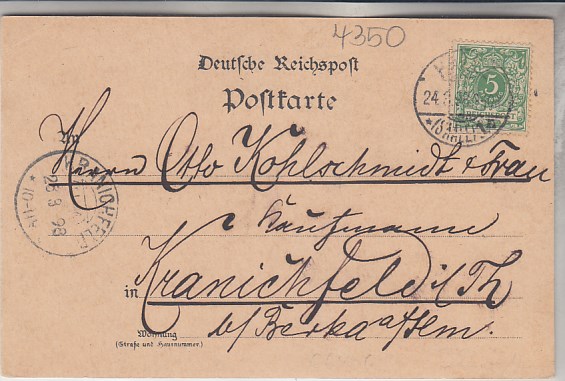 4350
Deutsche Reichspost
Postkarte
5
24.3.
*(SAALE)
An
Herrn Otto Kohlschmidt & Frau
KRANICHFELD
25 3 98
* 10-11V
Kaufmann
in Kranichfeld i/Th
b/Berka a/Ilm.
Wohnung
(Straße und Hausnummer.)